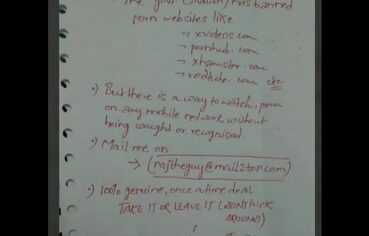 The govt. (Indian) has banned
porn websites like
→ xvideos.com
→ pornhub.com
→ xhamster.com
→ redtube.com etc
•) But there is a way to watch porn
on any mobile network without
being caught or recognised.
•) Mail me on
→ (rajtheguy@mail2tor.com)
•) 100% genuine, once a time deal
TAKE IT OR LEAVE IT (WONT FUCK
AROUND)